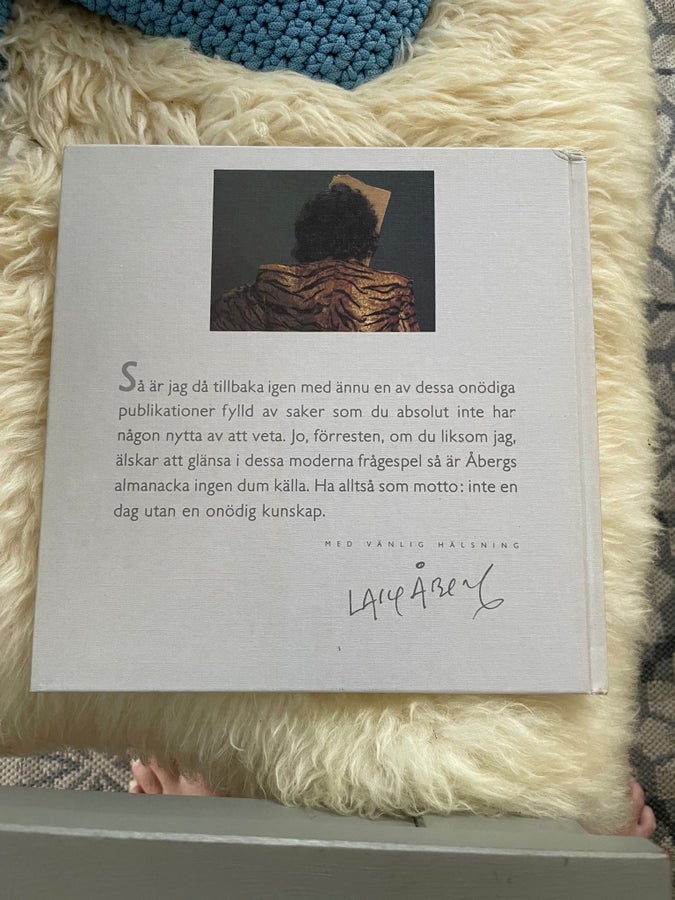 Så är jag då tillbaka igen med ännu en av dessa onödiga
publikationer fylld av saker som du absolut inte har
någon nytta av att veta. Jo, förresten, om du liksom jag,
älskar att glänsa i dessa moderna frågespel så är Åbergs
almanacka ingen dum källa. Ha alltså som motto: inte en
dag utan en onödig kunskap.
MED VÄNLIG HÄLSNING
LASSE ÅBERG